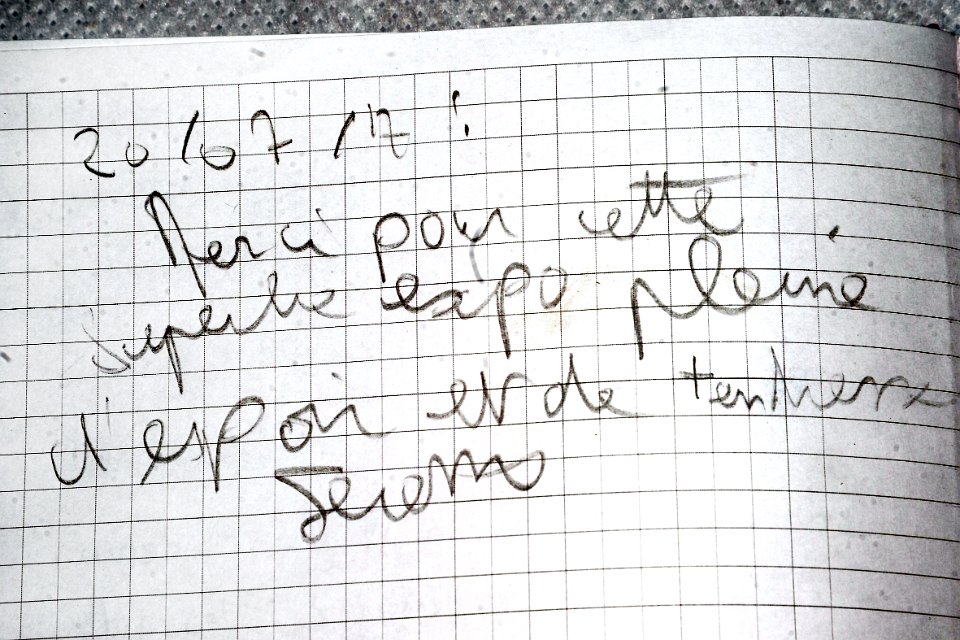 20/07/17 :
Merci pour cette
superbe expo pleine
d'espoir et de tendresse